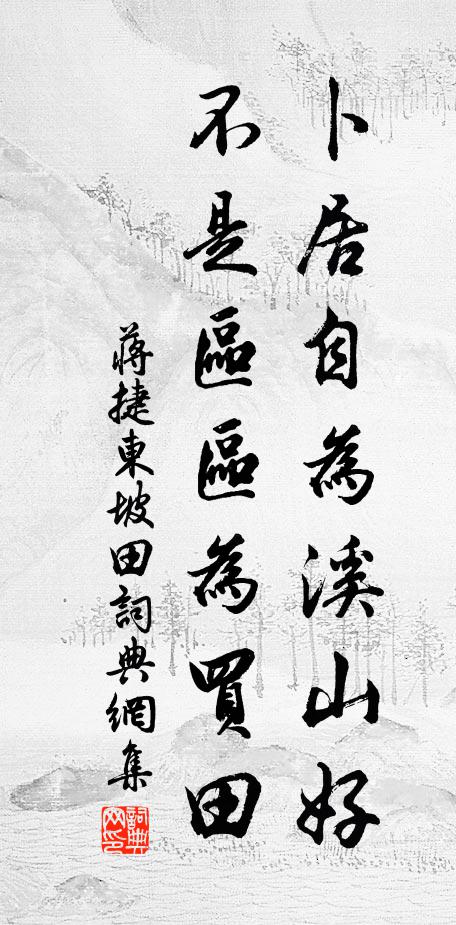 卜居自為溪山好
不是區區為買田
蔣捷東坡田詞典網集
詞典網印